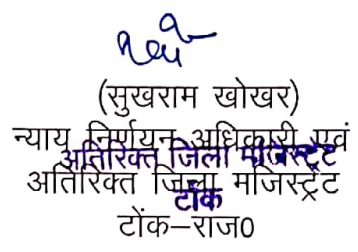 (सुखराम खोखर)
न्याय निर्णयन अधिकारी एवं
अतिरिक्त जिला मजिस्ट्रेट
अतिरिक्त जिला मजिस्ट्रेट
टोंक
टोंक-राज0